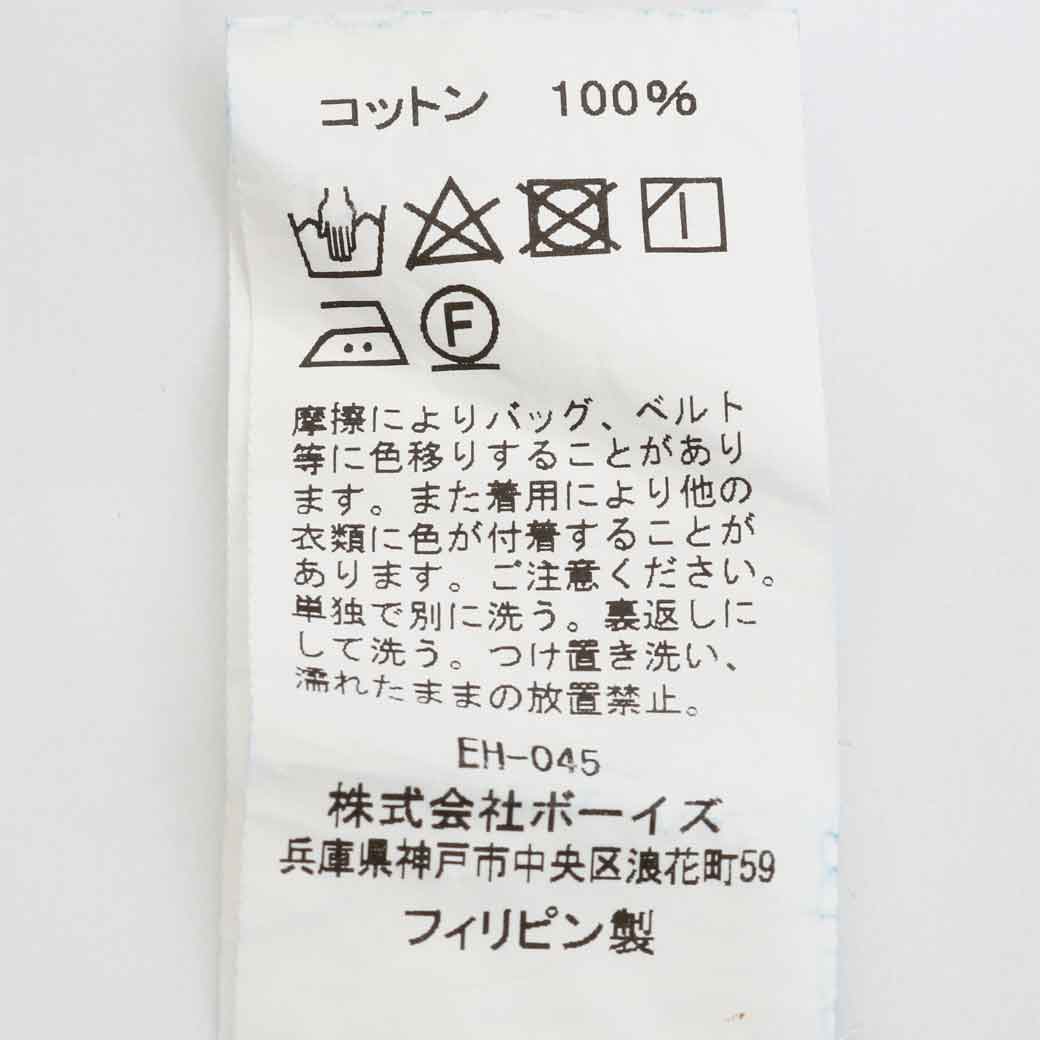 コットン 100%
F
摩擦によりバッグ、ベルト
等に色移りすることがあり
ます。また着用により他の
衣類に色が付着することが
あります。ご注意ください。
単独で別に洗う。裏返しに
して洗う。つけ置き洗い、
濡れたままの放置禁止。
EH-045
株式会社ボーイズ
兵庫県神戸市中央区浪花町59
フィリピン製